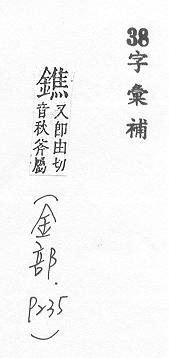 38字彙補
鐎
又即由切
音秋斧屬
(金部.
P235)